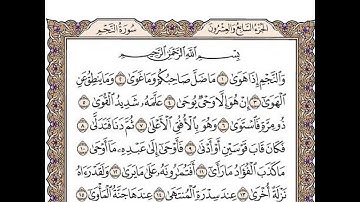 الجزء السابع والعشرون
سورة النجم
بِسْمِ اللَّهِ الرَّحْمَٰنِ الرَّحِيمِ
وَالنَّجْمِ إِذَا هَوَىٰ ١ مَا ضَلَّ صَاحِبُكُمْ وَمَا غَوَىٰ ٢ وَمَا يَنطِقُ عَنِ
الْهَوَىٰ ٣ إِنْ هُوَ إِلَّا وَحْيٌ يُوحَىٰ ٤ عَلَّمَهُ شَدِيدُ الْقُوَىٰ ٥
ذُو مِرَّةٍ فَاسْتَوَىٰ ٦ وَهُوَ بِالْأُفُقِ الْأَعْلَىٰ ٧ ثُمَّ دَنَا فَتَدَلَّىٰ ٨
فَكَانَ قَابَ قَوْسَيْنِ أَوْ أَدْنَىٰ ٩ فَأَوْحَىٰ إِلَىٰ عَبْدِهِ مَا أَوْحَىٰ ١٠
مَا كَذَبَ الْفُؤَادُ مَا رَأَىٰ ١١ أَفَتُمَارُونَهُ عَلَىٰ مَا يَرَىٰ ١٢ وَلَقَدْ رَآهُ
نَزْلَةً أُخْرَىٰ ١٣ عِندَ سِدْرَةِ الْمُنتَهَىٰ ١٤ عِندَهَا جَنَّةُ الْمَأْوَىٰ ١٥